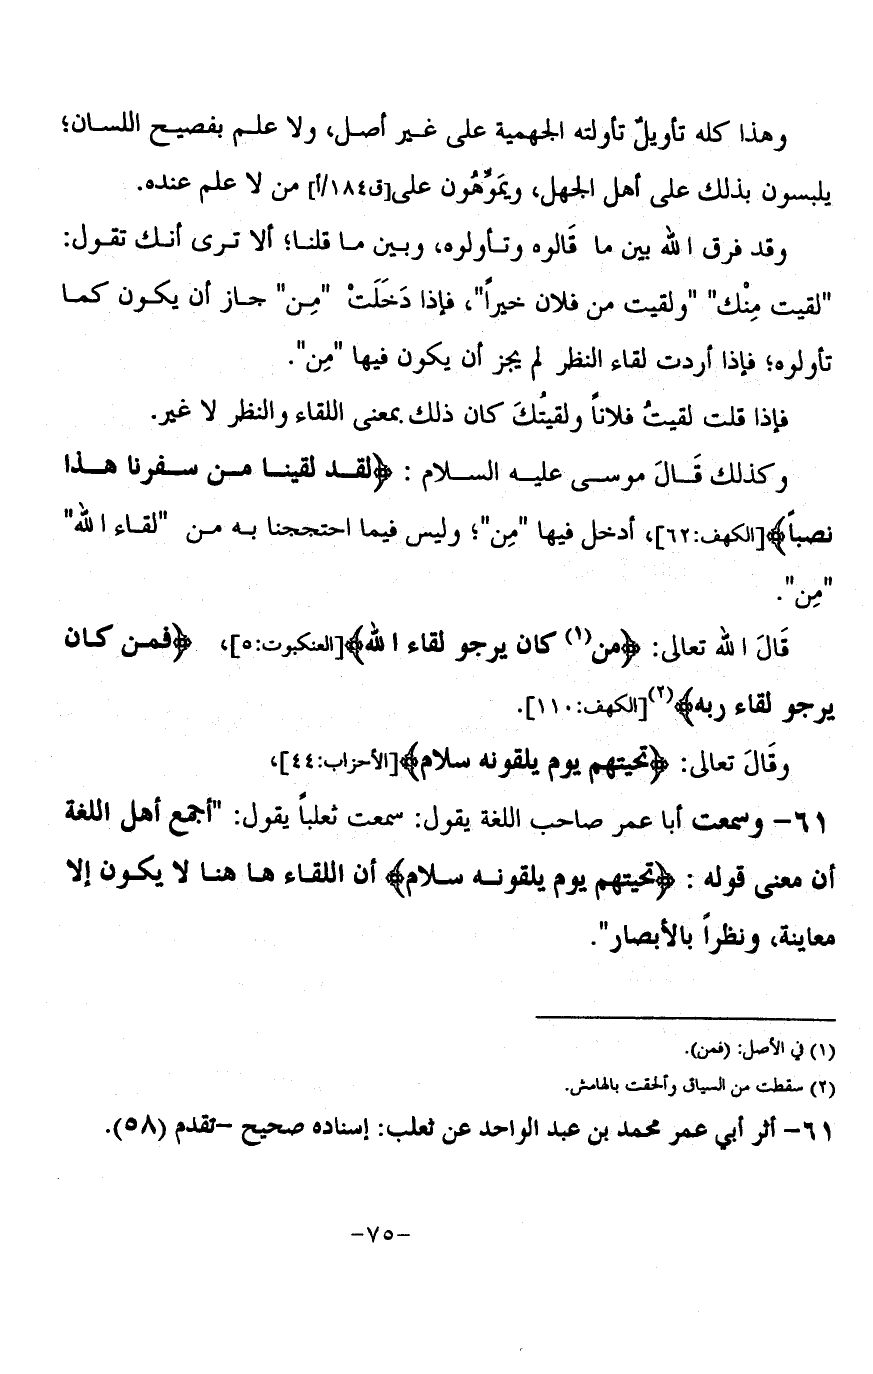 وهذا كله تأويلٌ تأولته الجهمية على غير أصل، ولا علم بفصيح اللسان؛
يلبسون بذلك على أهل الجهل، ويَموِّهُون على[ق١٨٤/أ] من لا علم عنده.
وقد فرق الله بين ما قَالوه وتأولوه، وبين ما قلنا؛ ألا ترى أنك تقول:
"لقيت مِنْك" "ولقيت من فلان خيراً"، فإذا دَخَلَتْ "مِن" جاز أن يكون كما
تأولوه؛ فإذا أردت لقاء النظر لم يجز أن يكون فيها "مِن".
فإذا قلت لقيتُ فلاناً ولقيتُكَ كان ذلك بمعنى اللقاء والنظر لا غير.
وكذلك قَالَ موسى عليه السلام : ﴿لقد لقينا من سفرنا هذا
نصباً﴾[الكهف:٦٢]، أدخل فيها "مِن"؛ وليس فيما احتججنا به من "لقاء الله"
"مِن".
قَالَ الله تعالى: ﴿من(١) كان يرجو لقاء الله﴾[العنكبوت:٥]، ﴿فمن كان
يرجو لقاء ربه﴾(٢)[الكهف:١١٠].
وقَالَ تعالى: ﴿تحيتهم يوم يلقونه سلام﴾[الأحزاب:٤٤]،
٦١- وسمعت أبا عمر صاحب اللغة يقول: سمعت ثعلباً يقول: "أجمع أهل اللغة
أن معنى قوله : ﴿تحيتهم يوم يلقونه سلام﴾ أن اللقاء ها هنا لا يكون إلا
معاينة، ونظراً بالأبصار".
(١) في الأصل: (فمن).
(٢) سقطت من السياق وألحقت بالهامش.
٦١- أثر أبي عمر محمد بن عبد الواحد عن ثعلب: إسناده صحيح -تقدم (٥٨).
-٧٥-